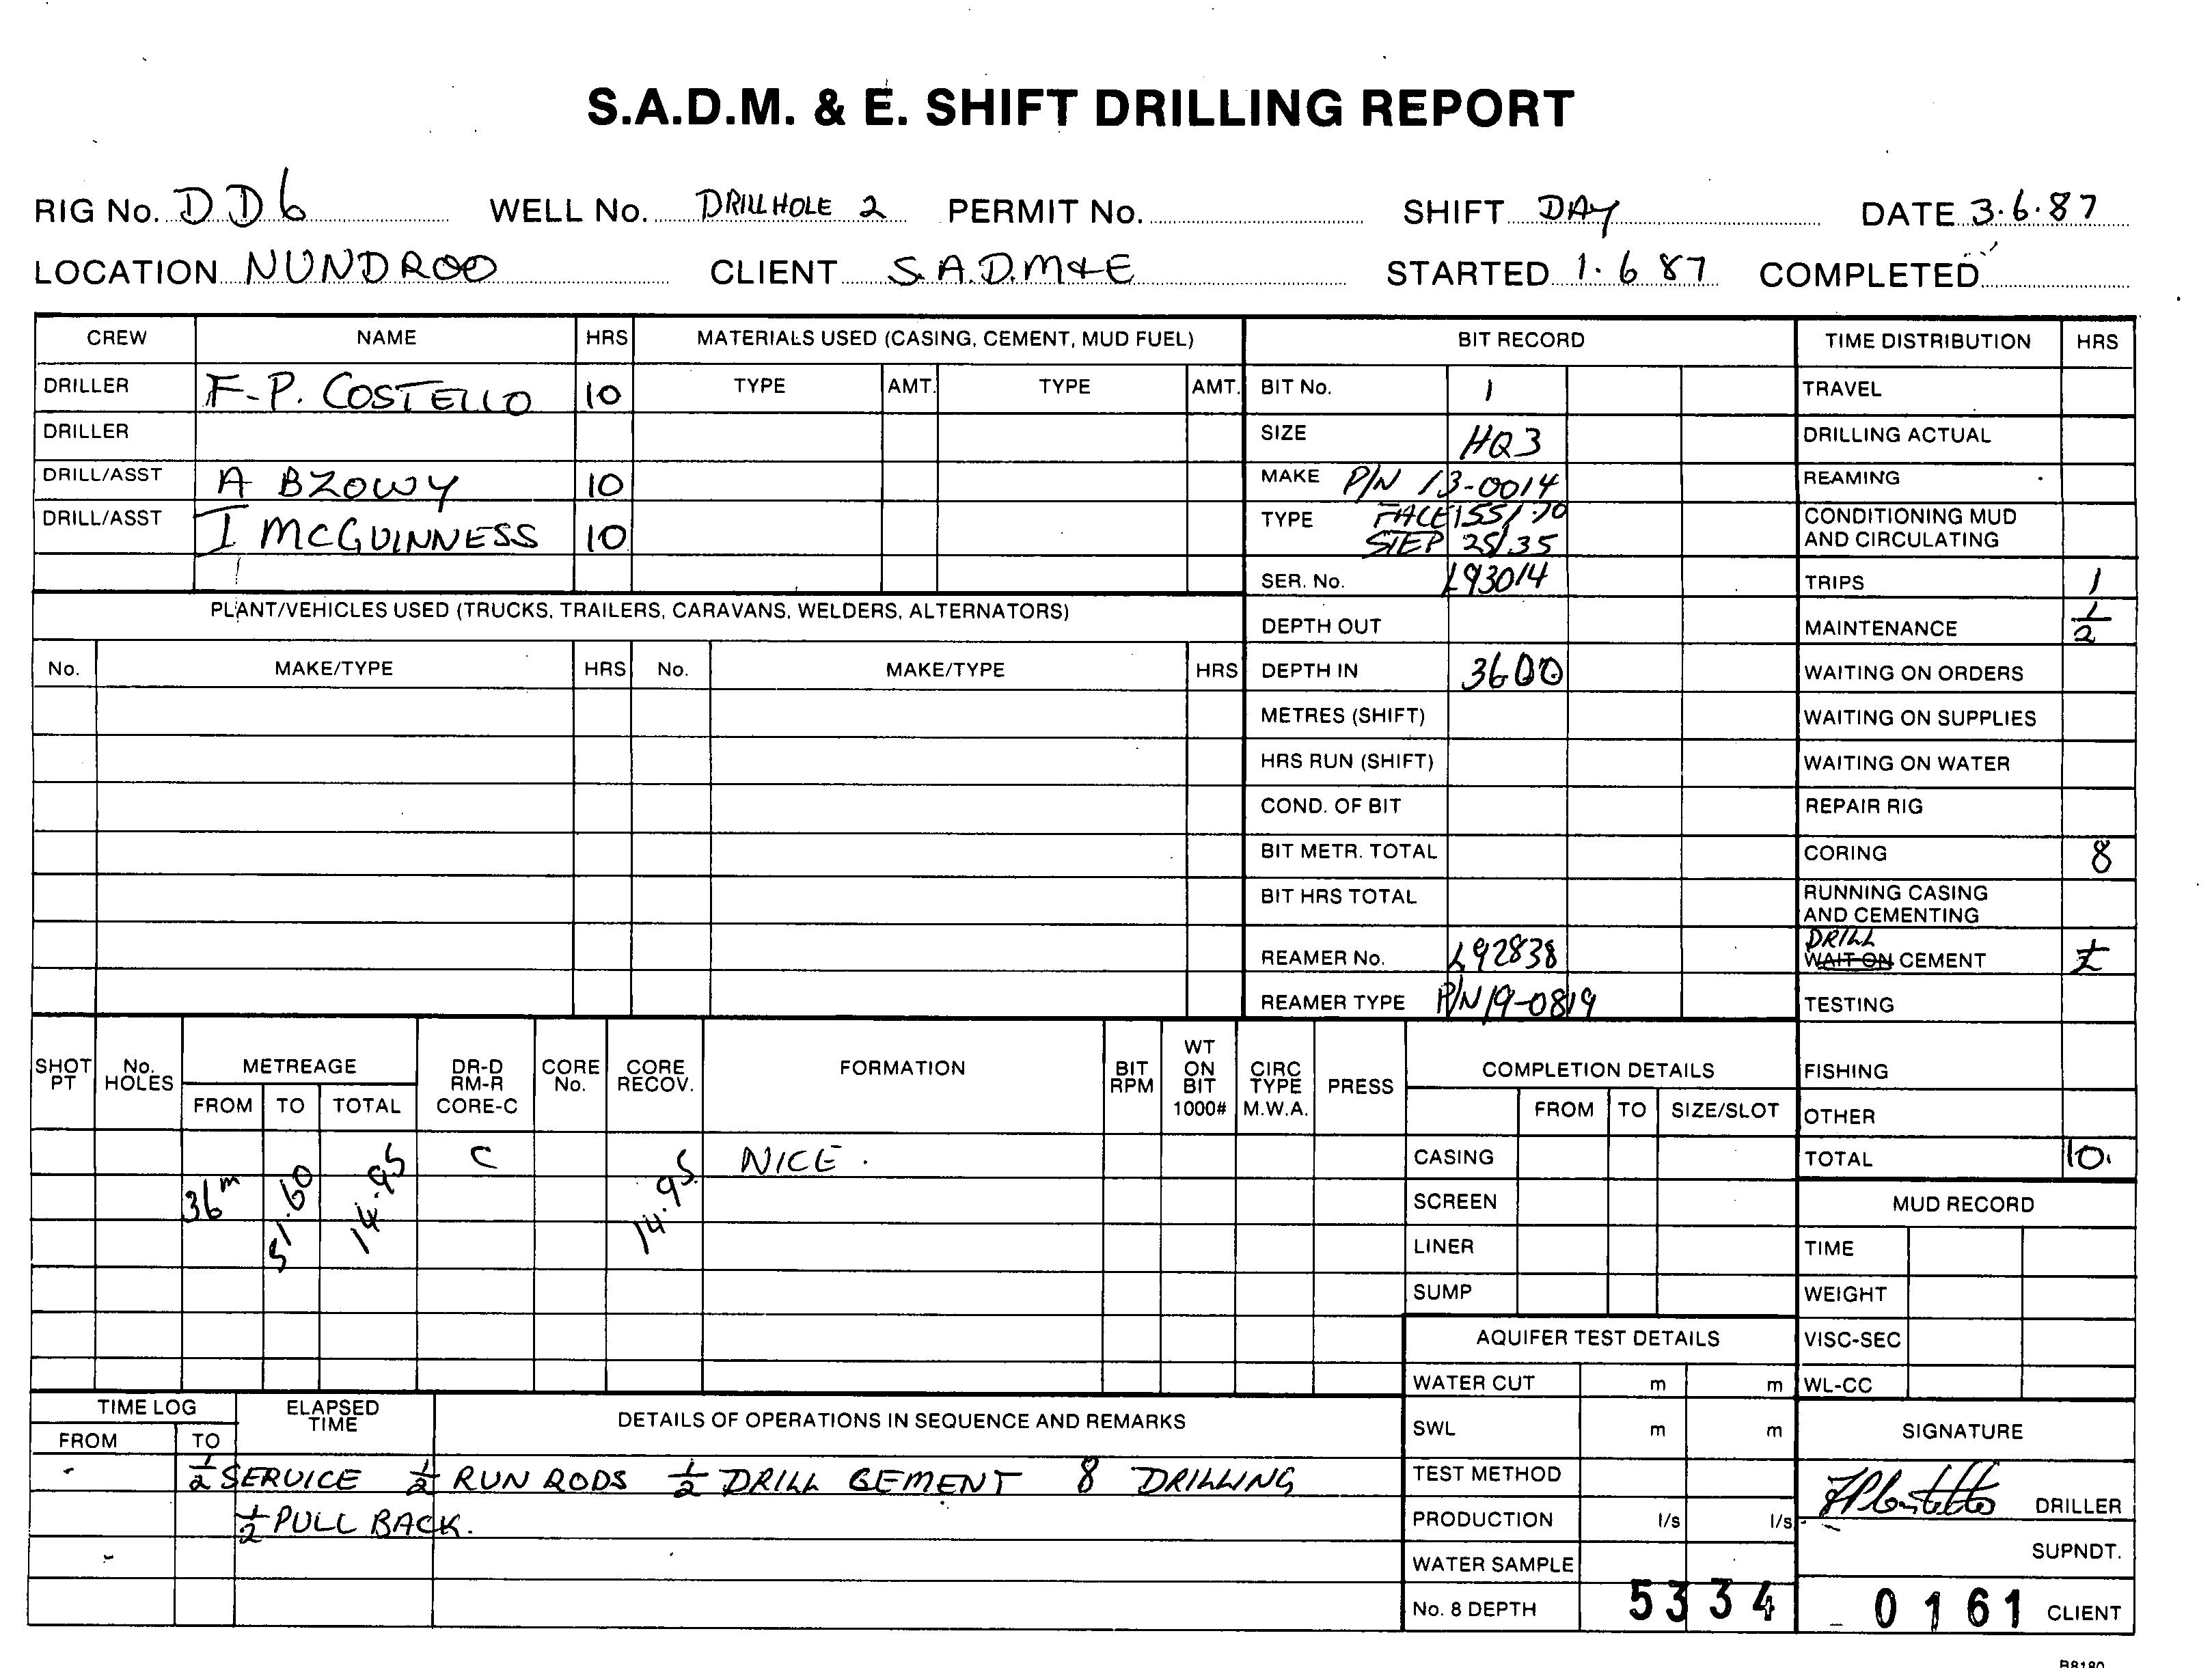 S.A.D.M. & E. SHIFT DRILLING REPORT
RIG No. DD6 WELL No. DRILLHOLE 2 PERMIT No. SHIFT DAY DATE 3.6.87
LOCATION NUNDROO CLIENT S.A.D.M&E STARTED 1.6 87 COMPLETED
CREW NAME HRS MATERIALS USED (CASING, CEMENT, MUD FUEL) BIT RECORD TIME DISTRIBUTION HRS
DRILLER F.P. COSTELLO 10 TYPE AMT. TYPE AMT. BIT No. 1 TRAVEL
DRILLER SIZE HQ3 DRILLING ACTUAL
DRILL/ASST A BZOWY 10 MAKE P/N 13-0014 REAMING
DRILL/ASST I MCGUINNESS 10 TYPE FACE 155/.70 STEP 25/35 CONDITIONING MUD AND CIRCULATING
SER. No. L93014 TRIPS 1
PLANT/VEHICLES USED (TRUCKS, TRAILERS, CARAVANS, WELDERS, ALTERNATORS) DEPTH OUT MAINTENANCE 1/2
No. MAKE/TYPE HRS No. MAKE/TYPE HRS DEPTH IN 3600 WAITING ON ORDERS
METRES (SHIFT) WAITING ON SUPPLIES
HRS RUN (SHIFT) WAITING ON WATER
COND. OF BIT REPAIR RIG
BIT METR. TOTAL CORING 8
BIT HRS TOTAL RUNNING CASING AND CEMENTING
REAMER No. L92838 DRILL WAIT ON CEMENT 1/2
REAMER TYPE P/N 19-0819 TESTING
SHOT PT No. HOLES METREAGE DR-D RM-R CORE-C CORE No. CORE RECOV. FORMATION BIT RPM WT ON BIT 1000# CIRC TYPE M.W.A. PRESS COMPLETION DETAILS FISHING
FROM TO TOTAL FROM TO SIZE/SLOT OTHER
36m 51.60 14.95 C 14.95 NICE. CASING TOTAL 10.
SCREEN MUD RECORD
LINER TIME
SUMP WEIGHT
AQUIFER TEST DETAILS VISC-SEC
WATER CUT m m WL-CC
TIME LOG ELAPSED TIME DETAILS OF OPERATIONS IN SEQUENCE AND REMARKS SWL m m SIGNATURE
FROM TO
1/2 SERVICE 1/2 RUN RODS 1/2 DRILL CEMENT 8 DRILLING TEST METHOD
1/2 PULL BACK. PRODUCTION l/s l/s DRILLER
WATER SAMPLE SUPNDT.
No. 8 DEPTH 5334 0161 CLIENT